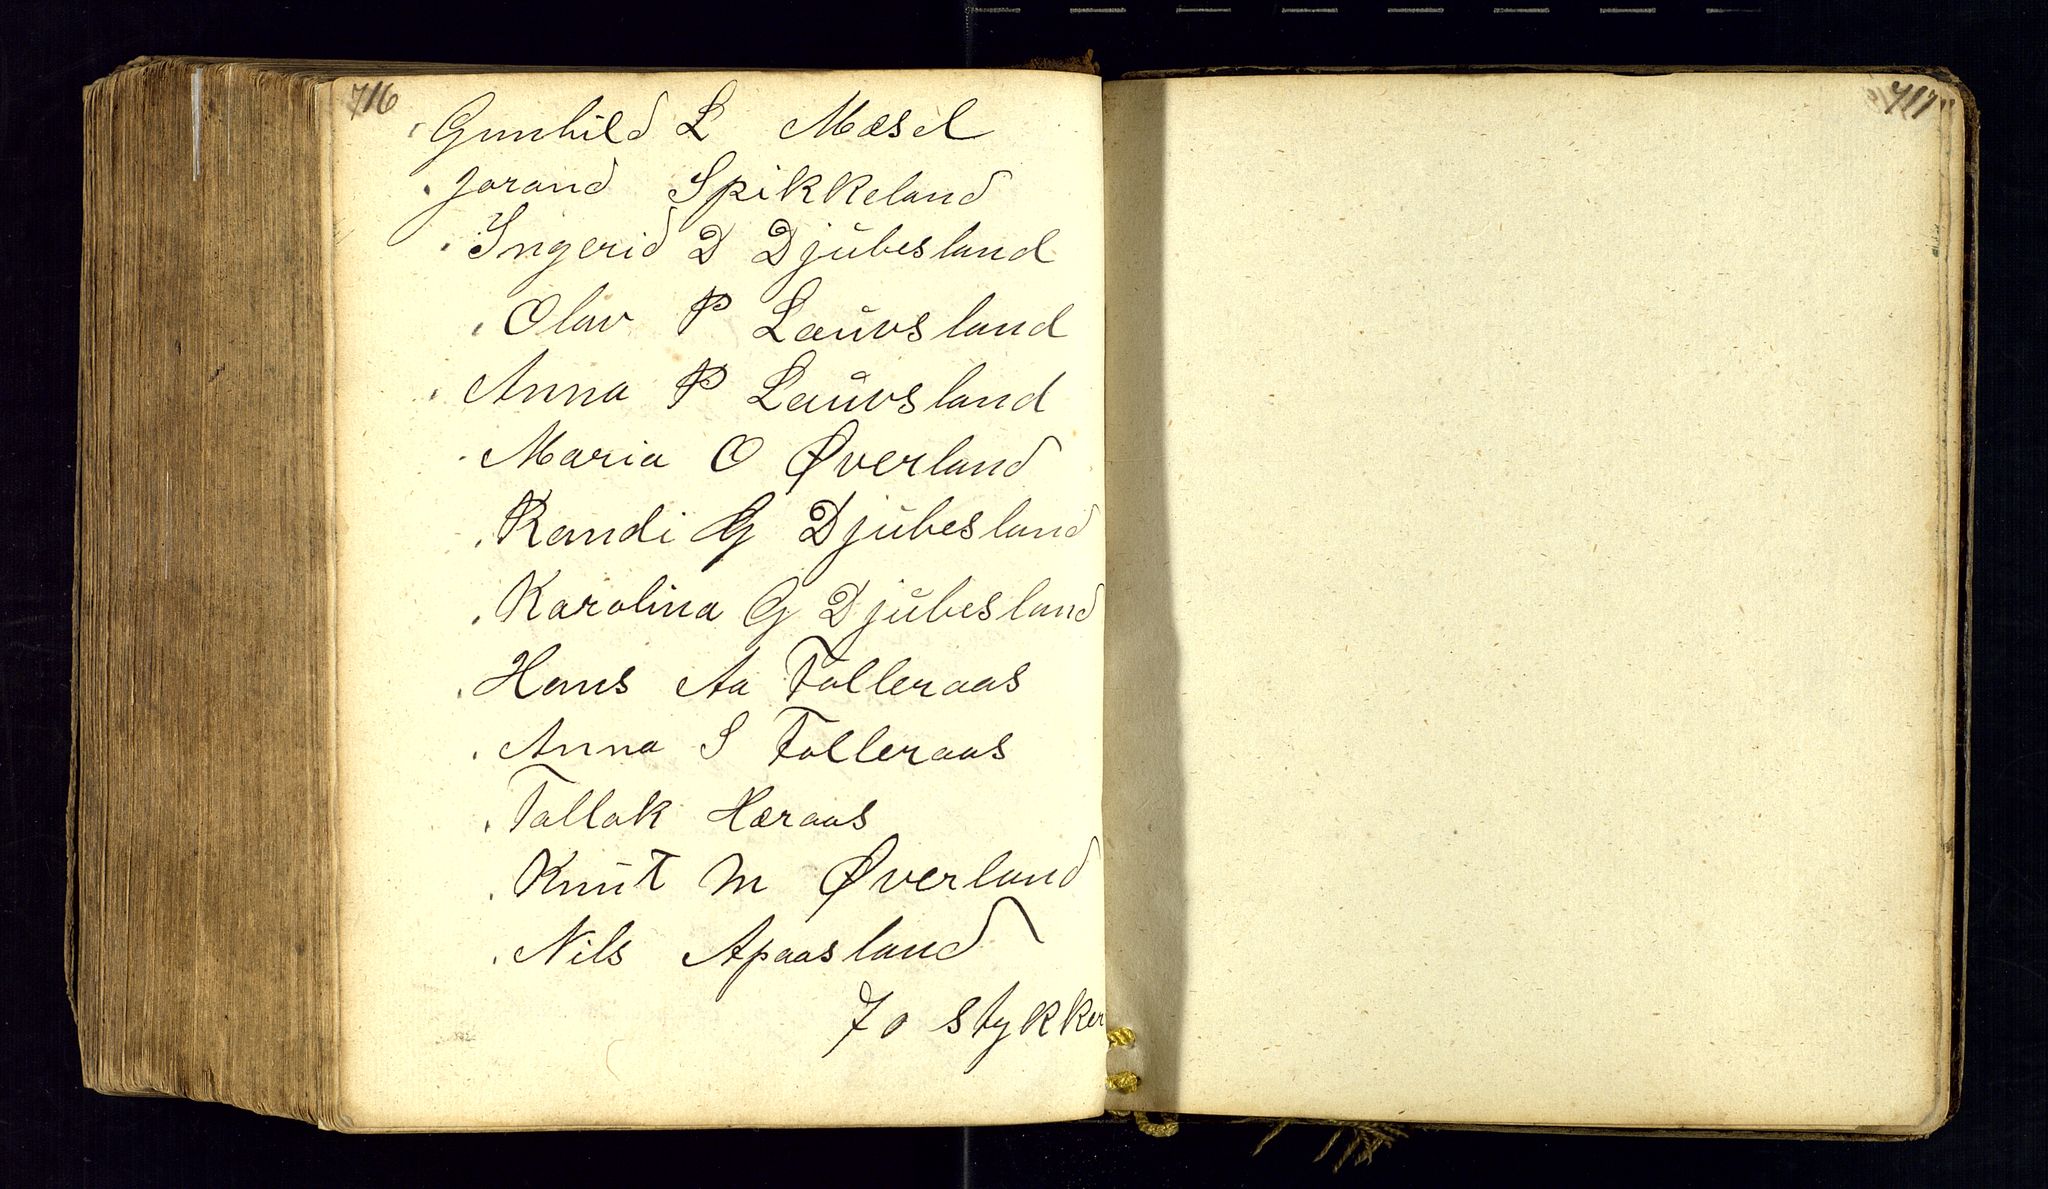 716
Gunhild L Mæsel
Jorand Spikkeland
Ingerid D Djubesland
Olav P Lauvsland
Anna P Lauvsland
Maria O Øverland
Randi G Djubesland
Karolina G Djubesland
Hans Aa Tolleraas
Anna S Tolleraas
Tallak Hæraas
Knut M Øverland
Nils Apaasland
70 stykker
717